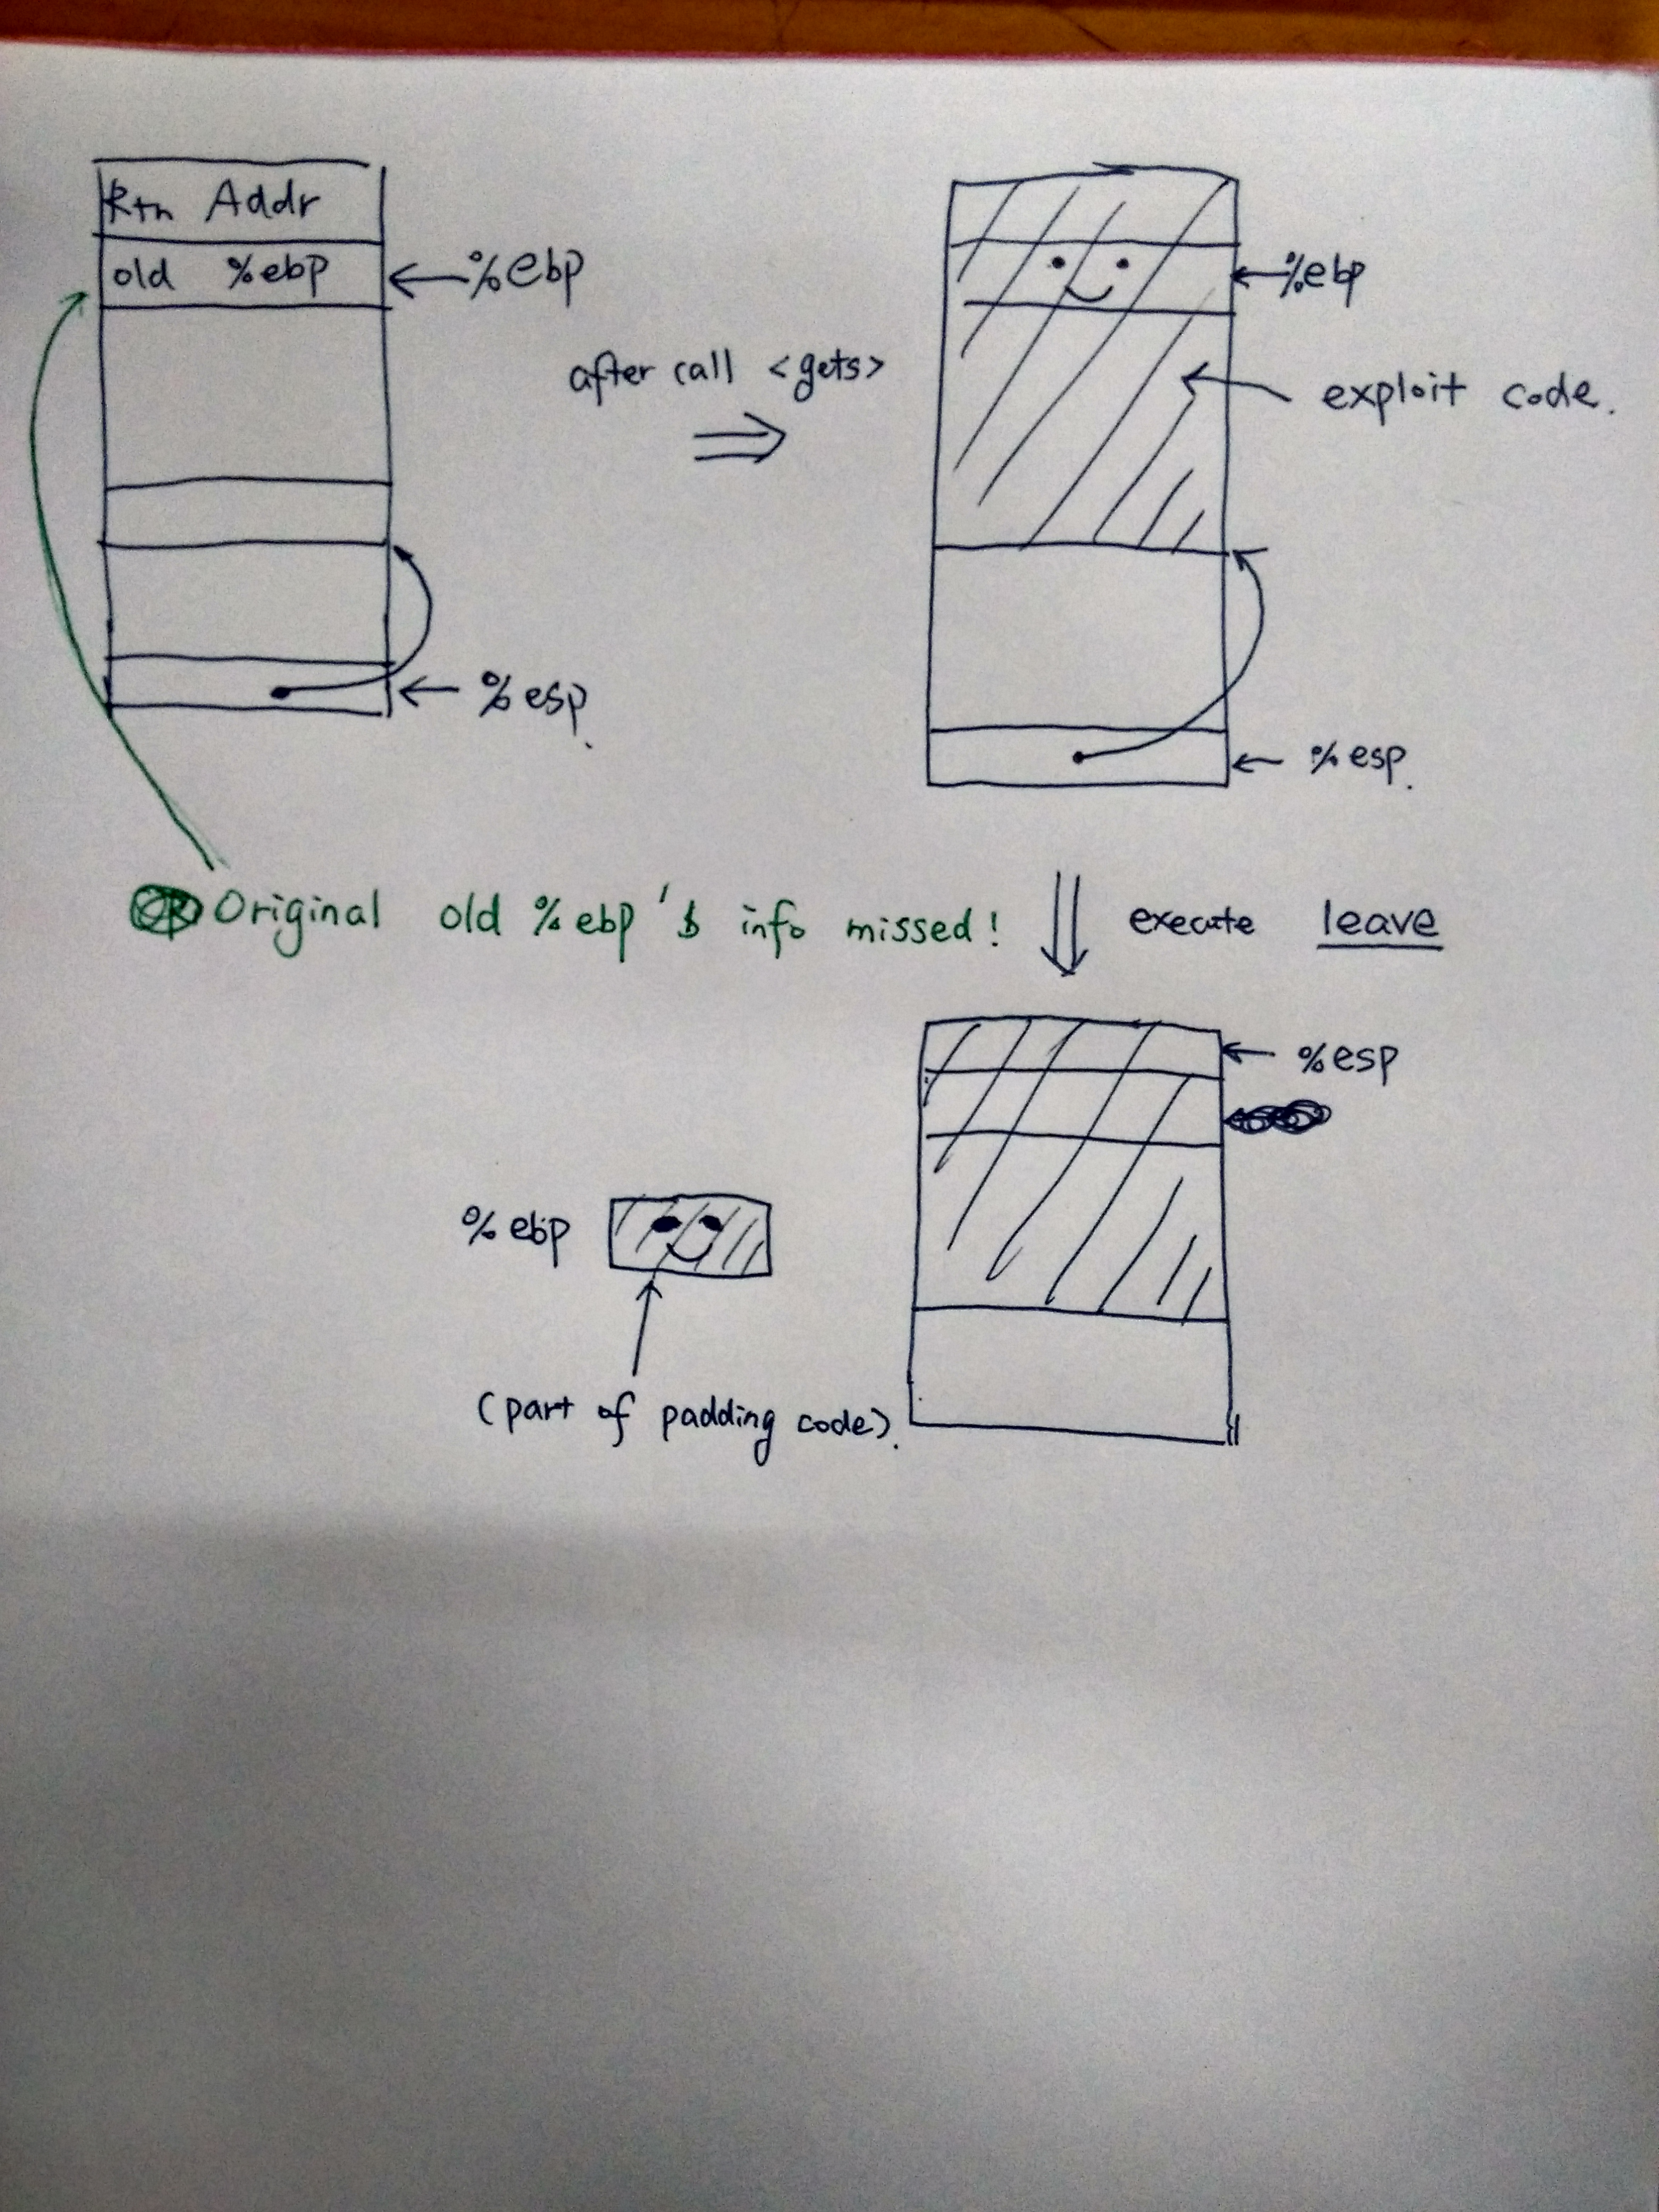 Rtn Addr
old %ebp
%ebp
%esp.
after call <gets>
%ebp
exploit code.
%esp.
Original old %ebp's info missed!
execute leave
%esp
%ebp
(part of padding code).